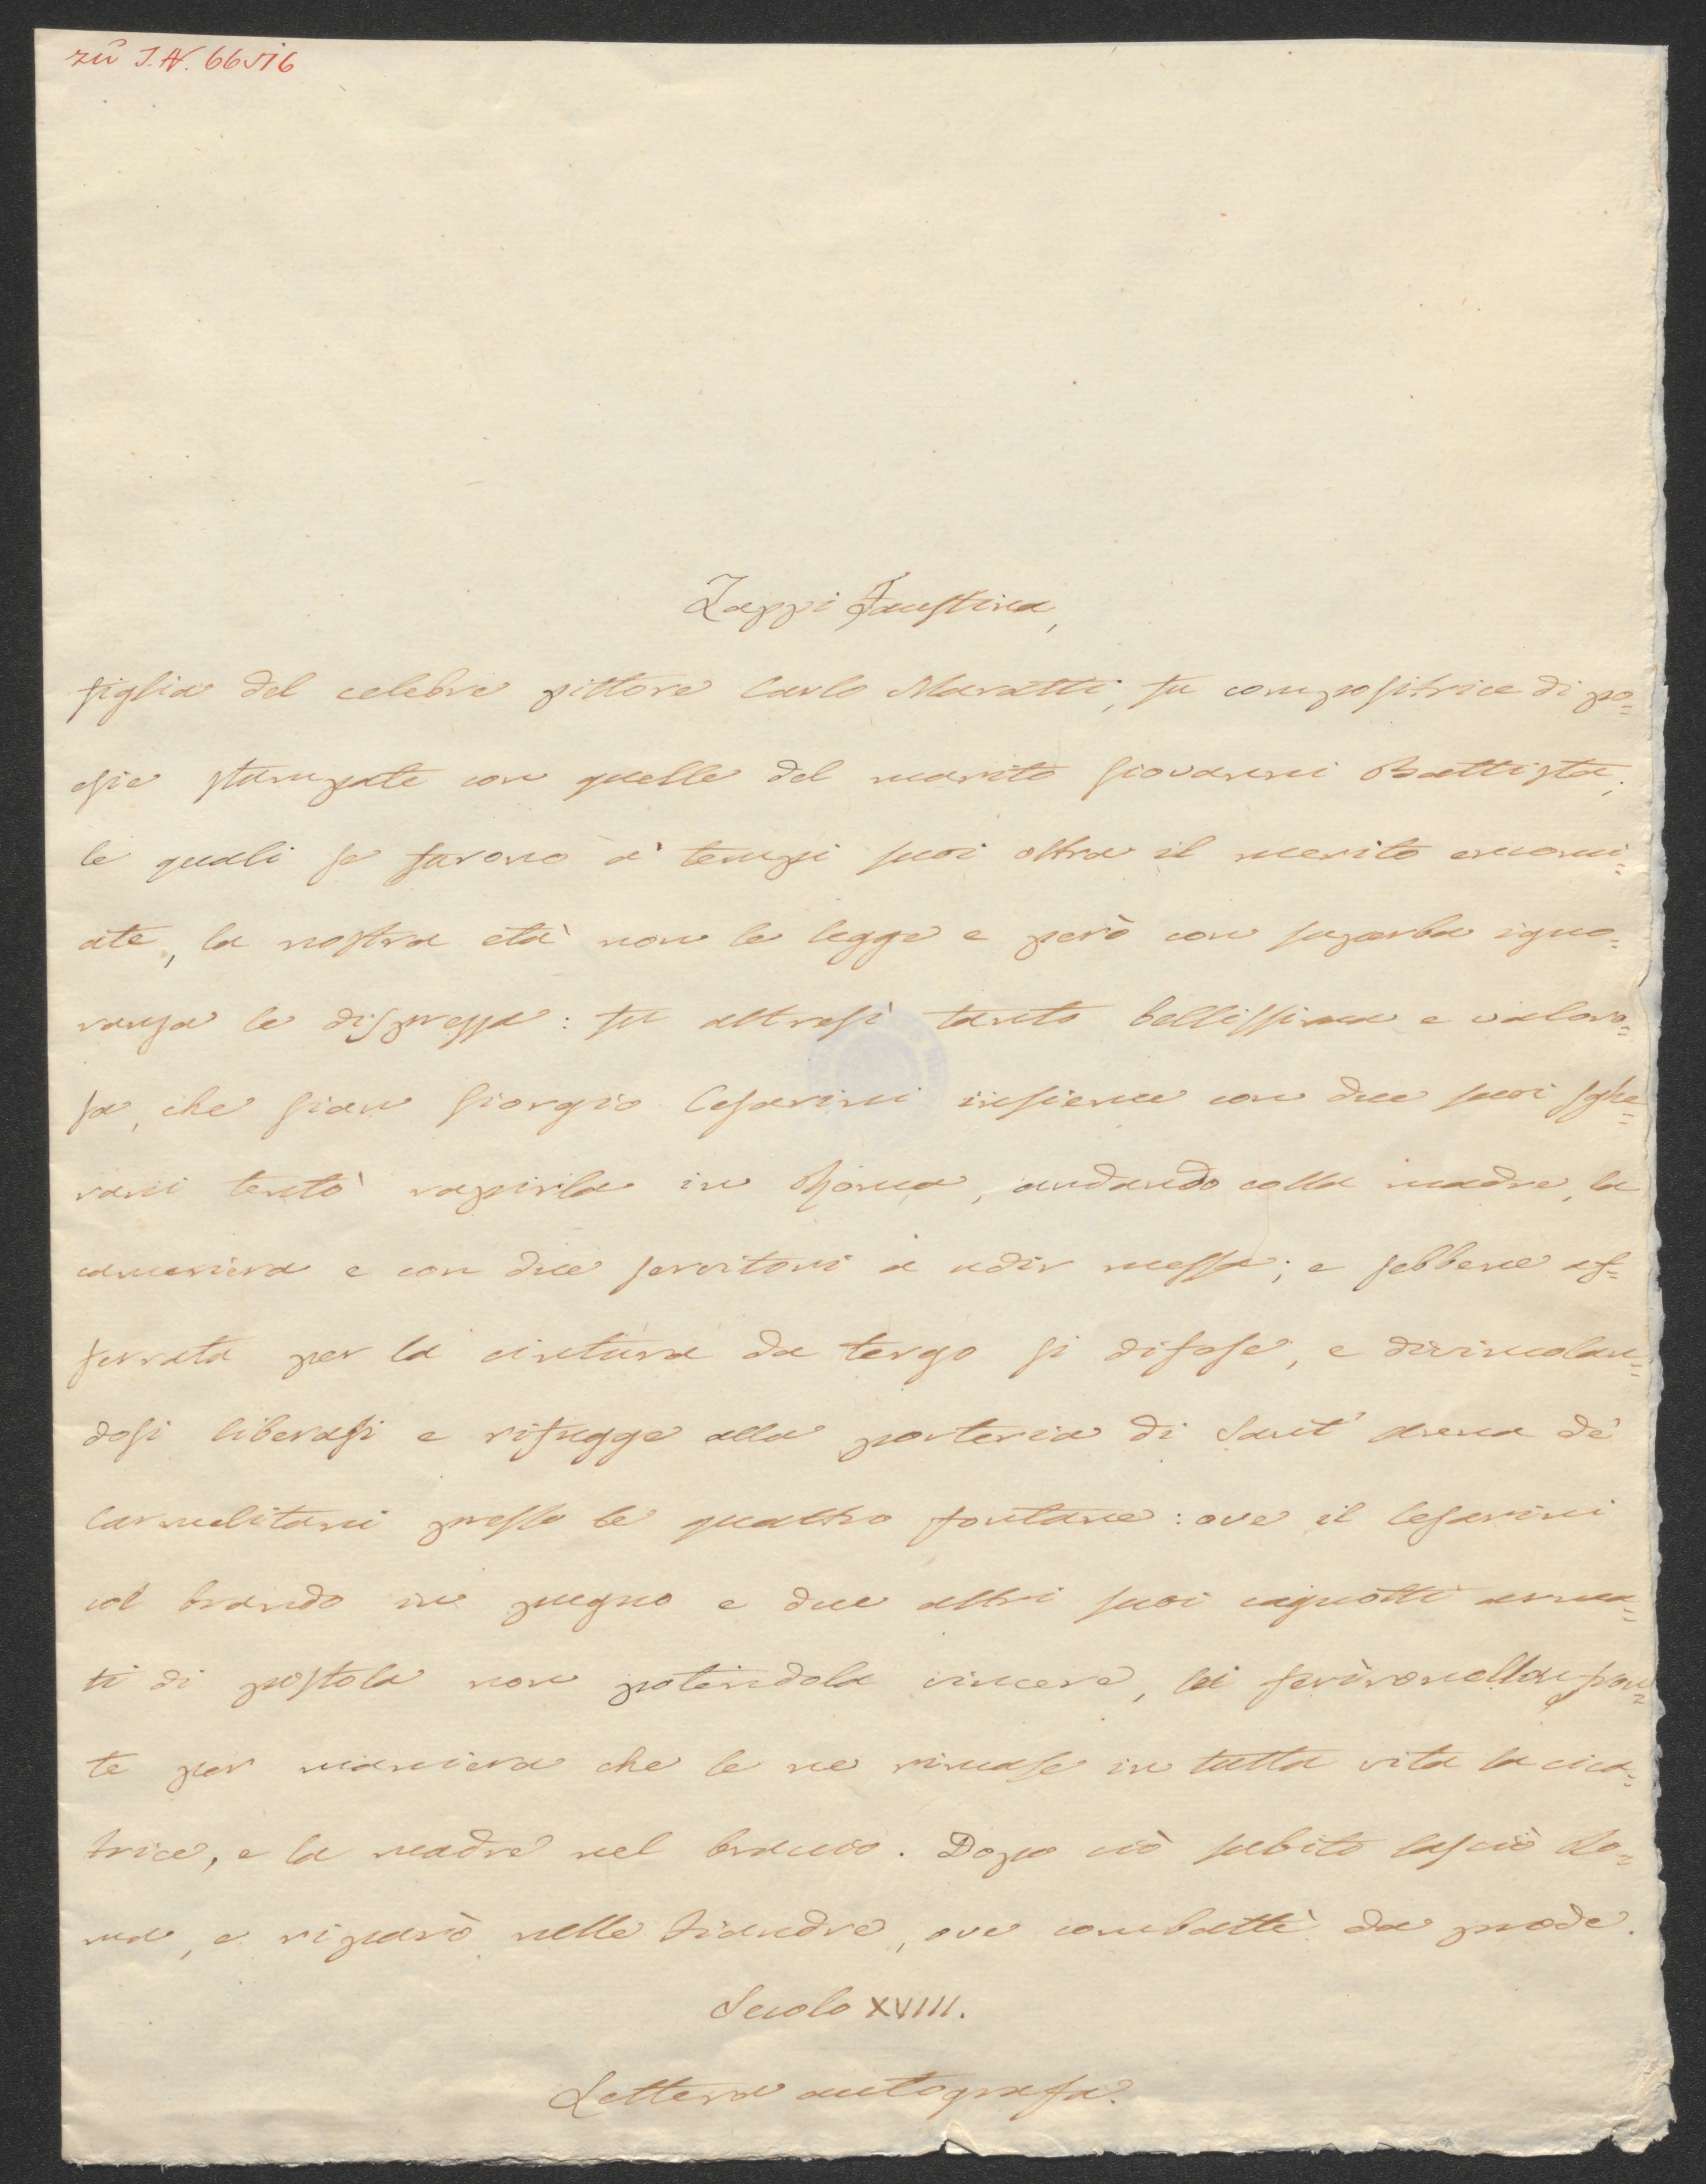 zu I.N. 66516
Zappi Faustina,
figlia del celebre pittore Carlo Maratti, fu compositrice di po=
esie stampate con quelle del marito Giovanni Battista;
le quali se furono a' tempi suoi oltra il merito encomi=
ate, la nostra età non le legge e però con superba igno=
ranza le disprezza: fu altresì tanto bellissima e valoro=
sa, che Gian Giorgio Cesarini insieme con due suoi sghe=
rani tentò rapirla in Roma, andando colla madre, la
cameriera e con due servitori a udir messa; e sebbene af=
ferrata per la cintura da tergo si difese, e divincolan=
dosi liberasi e rifugge alla porteria di Sant' Anna de'
Carmelitani presso le quattro fontane: ove il Cesarini
col brando in pugno e due altri suoi cagnotti arma=
ti di pistola non potendola vincere, lei ferirono nella fron=
te per maniera che le ne rimase in tutta vita la cica=
trice, e la madre nel braccio. Dopo ciò subito lasciò Ro=
ma, e riparò nelle Fiandre, ove combattè da prode.
Secolo XVIII.
Lettera autografa.